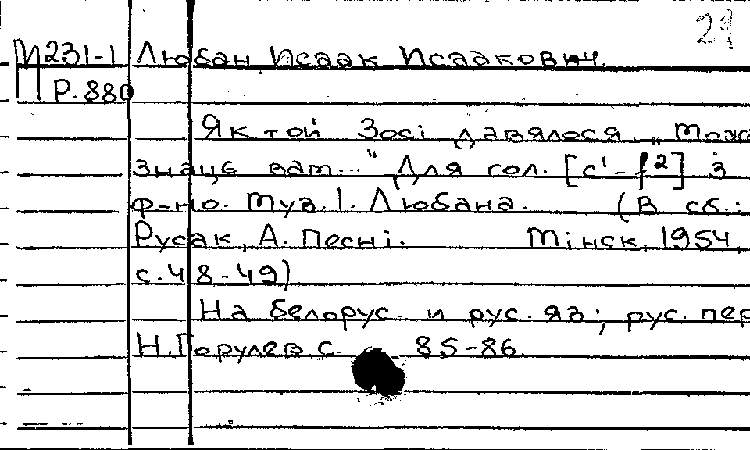 29
М231-1 Любан, Исаак Исаакович.
Р.880
Як той Зосі давялося „Можа
знаце вам..." Для гол. [c¹-f²] з
ф-но. Муз. І. Любана. (В сб.:
Русак, А. Песні. Мінск, 1954,
с.48-49)
На белорус. и рус. яз; рус. пер
Н.Горулев с. 85-86.